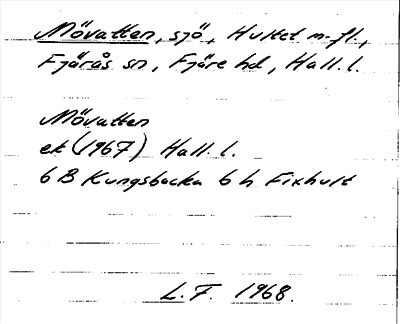 Mövatten, sjö, Hultet m.fl.,
Fjärås sn, Fjäre hd, Hall. l.
Mövatten
ek (1967) Hall. l.
6 B Kungsbacka 6 h Fixhult
L.F. 1968.